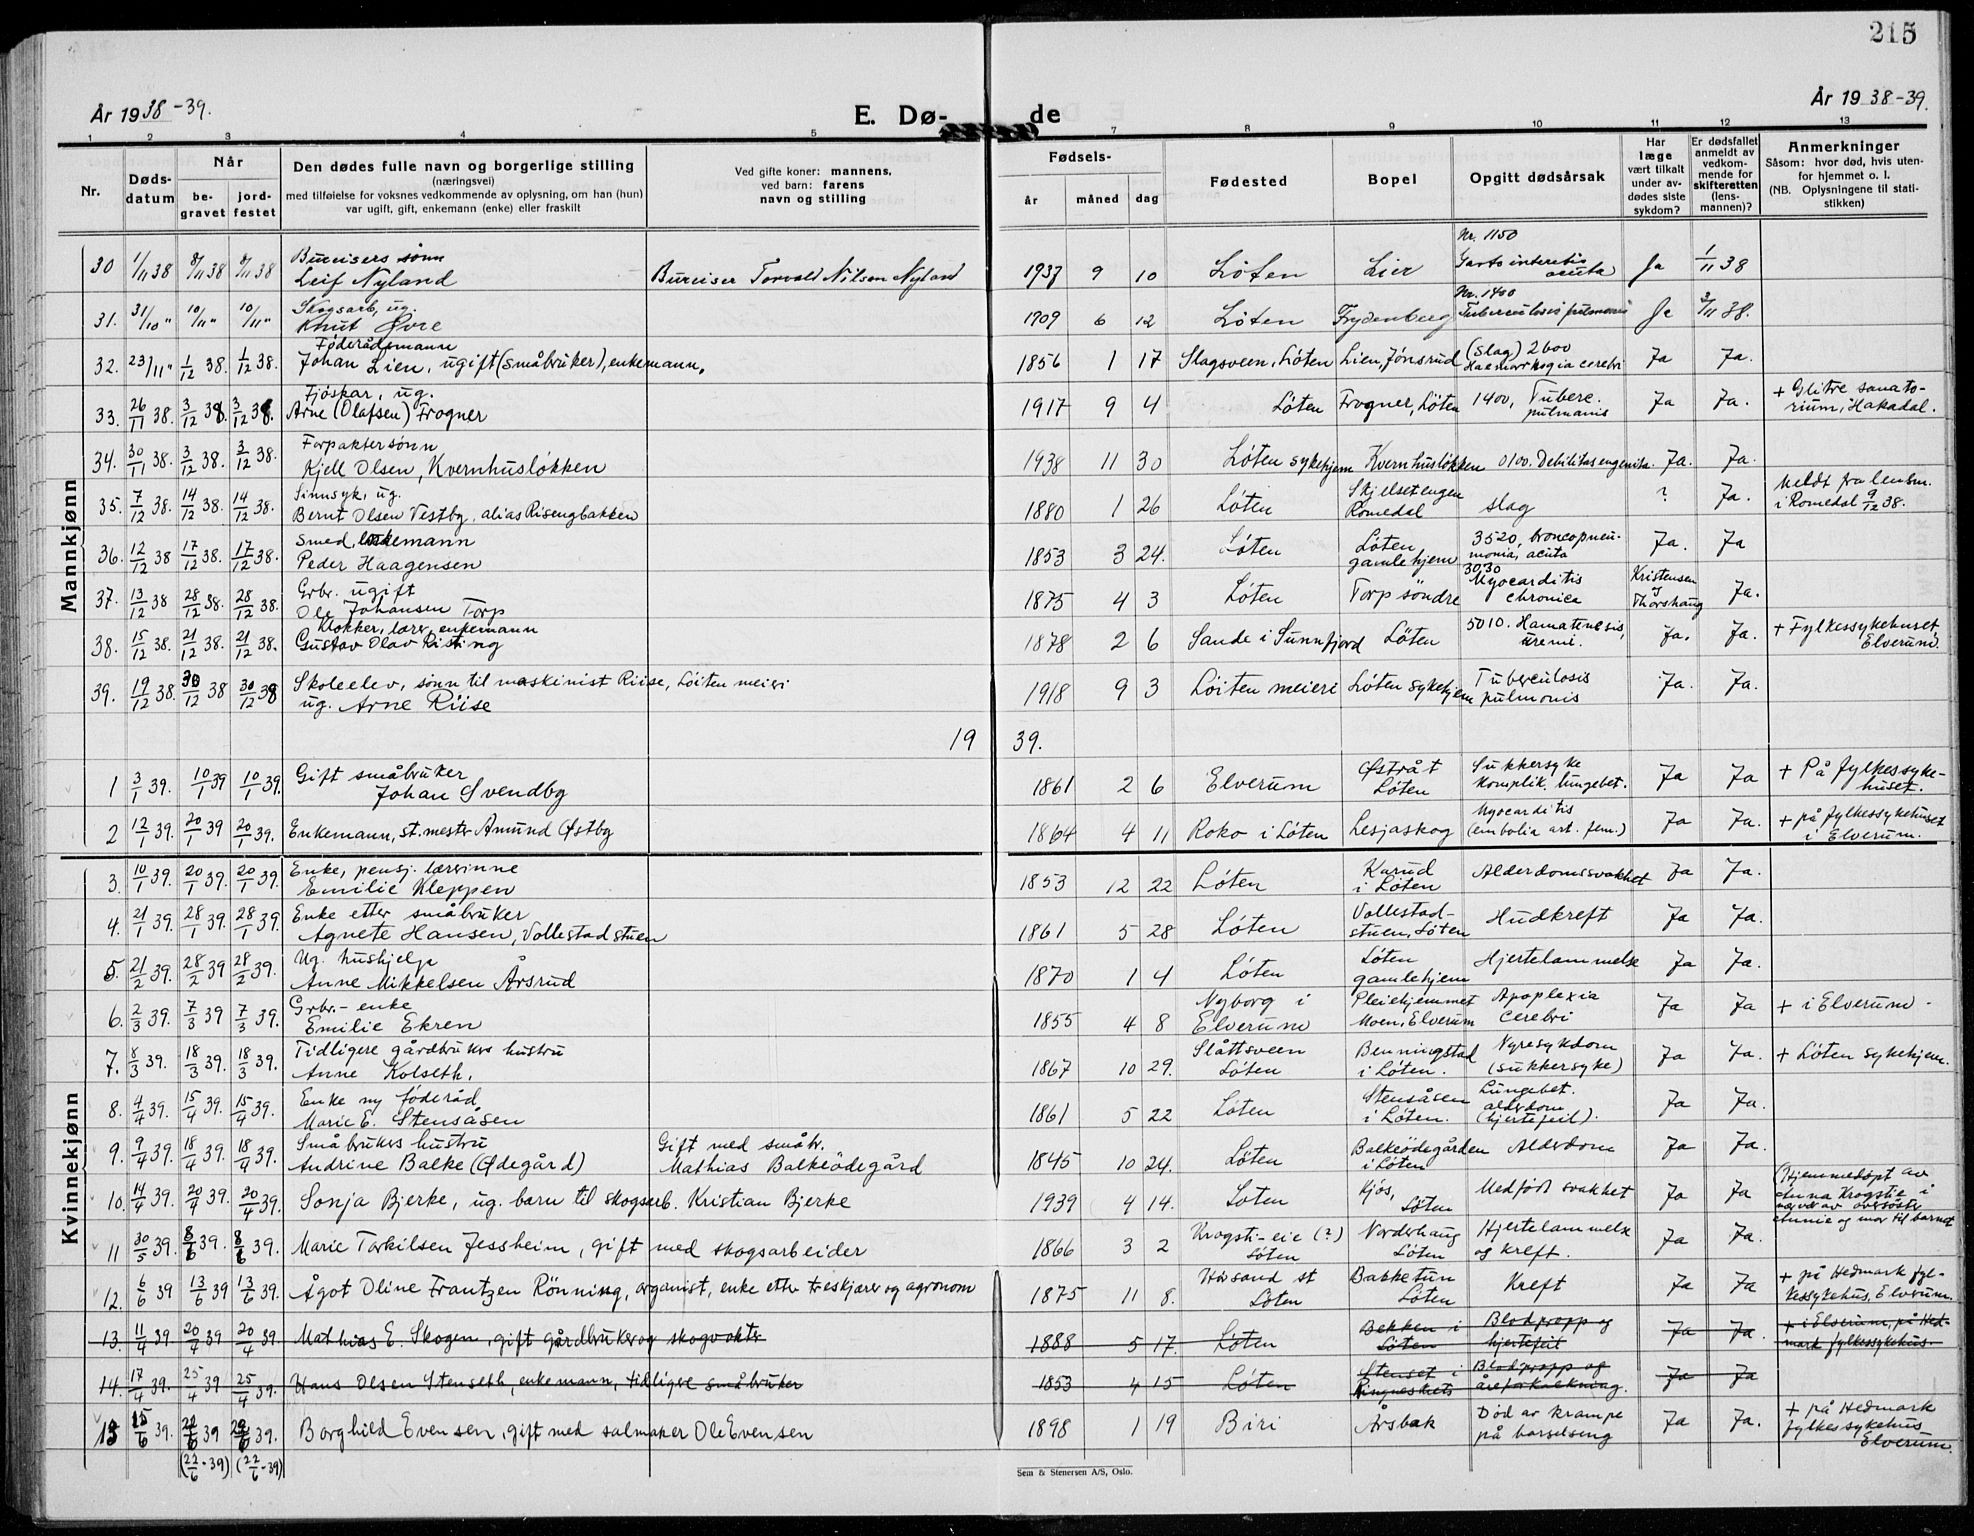 215
År 1938-39.
E. Dø-
de
År 1938-39.
1 2 3 4 5 7 8 9 10 11 12 13
Nr.
Døds-
datum
Når
be-
gravet
jord-
festet
Den dødes fulle navn og borgerlige stilling
(næringsvei)
med tilføielse for voksnes vedkommende av oplysning, om han (hun)
var ugift, gift, enkemann (enke) eller fraskilt
Ved gifte koner: mannens,
ved barn: farens
navn og stilling
Fødsels-
år måned dag
Fødested
Bopel
Opgitt dødsårsak
Har
læge
vært tilkalt
under av-
dødes siste
sykdom?
Er dødsfallet
anmeldt av
vedkom-
mende for
skifteretten
(lens-
mannen)?
Anmerkninger
Såsom: hvor død, hvis uten-
for hjemmet o. l.
(NB. Oplysningene til stati-
stikken)
Mannkjønn
30 1/11 38 8/11 38 8/11 38 Bureisers sønn
Leif Nyland Bureiser Torvald Nilsen Nyland 1937 9 10 Løten Lier Nr. 1150
acuta Ja 1/11 38
31. 31/10 " 10/11 " 10/11 " Skogsarb, ug.
Knut Øvre 1909 6 12 Løten Frydenberg Nr. 1400
Tuberculosis pulmonis Ja 2/11 38.
32. 23/11 " 1/12 38. 1/12 38. Føderådsmann
Johan Lien, ugift (småbruker), enkemann. 1856 1 17 Slagsveen, Løten Lien, Jønsrud (Slag) 2600
cerebri Ja Ja.
33. 26/11 38. 3/12 38. 3/12 38. Fjøskar, ug.
Arne (Olafsen) Frogner 1917 9 4 Løten Frogner, Løten 1400, Tuberc.
pulmonis Ja Ja. + Glitre sanato-
rium, Hakadal.
34. 30/11 38. 3/12 38. 3/12 38. Forpaktersønn
Kjell Olsen, Kvernhusløkken 1938 11 30 Løten sykehjem Kvernhusløkken 0100. Debilitas Ja. Ja.
35. 7/12 38. 14/12 38. 14/12 38. Sinnsyk, ug.
Bernt Olsen Vestby, alias Risengbakken 1880 1 26 Løten Skjelsetengen
Romedal slag ? Ja. Meldt fra lensm.
i Romedal 9/12 38.
36. 12/12 38 17/12 38. 17/12 38. Smed, enkemann
Peder Haagensen 1853 3 24. Løten Løten
gamlehjem 3520, broncopneu-
monia, acuta Ja. Ja
37. 13/12 38 28/12 38. 28/12 38. Grbr. ugift
Ole Johansen Torp 1875 4 3 Løten Torp söndre 3030
Myocarditis
chronica Kristensen
Thorshaug Ja.
38. 15/12 38. 21/12 38. 21/12 38. Klokker, lærer, enkemann
Gustav Olav Risting 1878 2 6 Sande i Sunnfjord Løten 5010.
uremi. Ja. Ja. + Fylkessykehuset,
Elverum.
39. 19/12 38. 30/12 38 30/12 38 Skoleelev, sønn til maskinist Riise, Løiten meieri
ug. Arne Riise 1918 9 3 Løiten meieri Løten sykehjem Tuberculosis
pulmonis Ja. Ja.
19 39.
1 3/1 39. 10/1 39 10/1 39. Gift småbruker
Johan Svendby 1861 2 6 Elverum Østråt
Løten Sukkersyke
Komplik. lungebet. Ja Ja + På fylkessyke-
huset.
2 12/1 39. 20/1 39 20/1 39. Enkemann, st.mestr Amund Østby 1864 4 11 Roko i Løten Lesjaskog Myocarditis
(embolia art. fem.) Ja Ja. + på fylkessykehuset
i Elverum.
Kvinnekjønn
3. 10/1 39. 20/1 39. 20/1 39. Enke, pensj. lærerinne
Emilie Kleppen 1853 12 22 Løten Karud
i Løten Alderdomssvakhet Ja Ja.
4. 21/1 39. 28/1 39. 28/1 39. Enke etter småbruker
Agnete Hansen, Vollestadstuen 1861 5 28 Løten Vollestad-
stuen, Løten Hudkreft Ja Ja.
5. 21/2 39. 28/2 39 28/2 39. Ug. hushjelp
Anne Mikkelsen Årsrud 1870 1 4 Løten Løten
gamlehjem Hjertelammelse Ja Ja.
6. 2/3 39. 7/3 39 7/3 39. Grbr.-enke
Emilie Ekren 1855 4 8 Nyborg i
Elverum Pleiehjemmet
Moen, Elverum Apoplexia
cerebri Ja Ja + i Elverum.
7. 8/3 39. 18/3 39. 18/3 39. Tidligere gårdbrukers hustru
Anne Kolseth. 1867 10 29. Slåttsveen
Løten Benningstad
i Løten. Nyresykdom
(sukkersyke) Ja Ja. + Løten sykehjem.
8. 4/4 39. 15/4 39. 15/4 39. Enke ny føderåd
Marie E. Stensåsen 1861 5 22 Løten Stensåsen
i Løten. Lungebet.
alderdom
(hjertefeil). Ja Ja.
9. 9/4 39. 18/4 39. 18/4 39. Småbrukers hustru
Andrine Balke (Ødegård) Gift med småbr.
Mathias Balkeödegård 1845 10 24. Løten Balkeödegården
i Løten Alderdom Ja Ja.
10. 14/4 39. 20/4 39. 20/4 39. Sonja Bjerke, ug. barn til skogsarb. Kristian Bjerke 1939 4 14. Løten Kjös,
Løten Medfödt svakhet Ja Ja (Hjemmedöpt av
Anna Krogstie i
nærvær av
Annie og mor til barnet
11 30/5 39. 8/6 39. 8/6 39. Marie Torkilsen Jessheim, gift med skogsarbeider 1866 3 2 Krogsti-eie (?)
Löten Norderhaug
Löten Hjertelammelse
og kreft. Ja Ja.
12. 6/6 39 13/6 39 13/6 39. Ågot Oline Frantzen Rönning, organist, enke etter treskjærer og agronom 1875 11 8. st
Löten Bakketun
Löten Kreft Ja Ja + på Hedmark fyl-
kessykehus, Elverum.
13. 11/4 39 20/4 39 20/4 39. Mathias E. Skogen, gift gårdbruker og skogvokter 1888 5 17. Löten Bekken i
Löten Blodpropp og
hjertefeil Ja Ja. + i Elverum, på Hed-
mark fylkessykehus.
14. 17/4 39. 25/4 39 25/4 39. Hans Olsen Stenseth, enkemann, tidligere småbruker 1853 4 15 Löten Stenset i
Blodpropp og
åreforkalkning. Ja Ja
13 15/6 39. 22/6 39 22/6 39. Borghild Evensen, gift med salmaker Ole Evensen 1898 1 19 Biri Årsbak Död av krampe
på barselseng Ja Ja. + på Hedmark
fylkessykehus
Elverum.
(22/6-39) (22/6-39)
Sem & Stenersen A/S, Oslo.